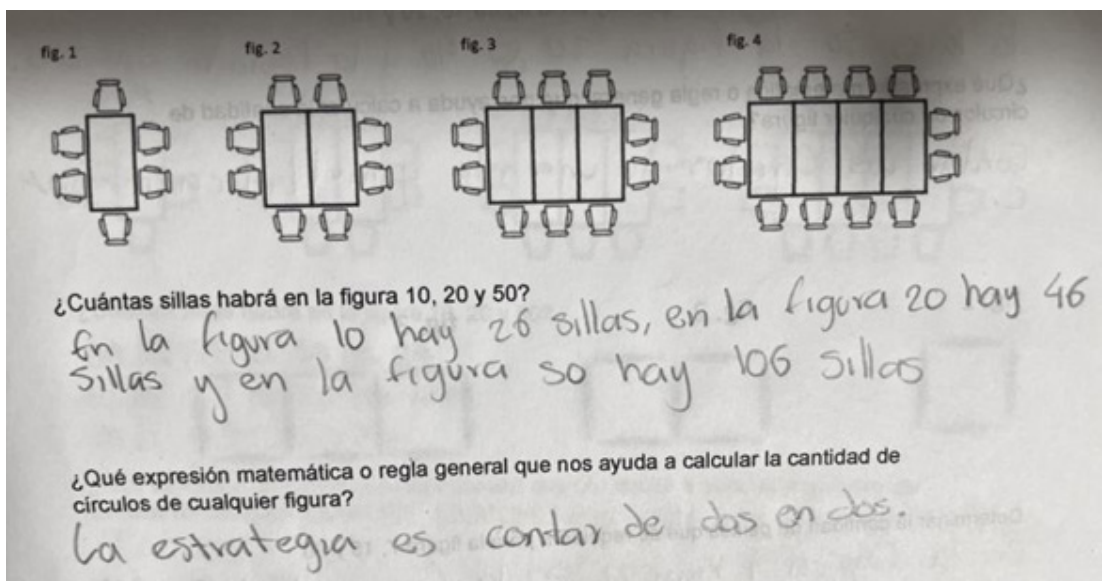 fig. 1 fig. 2 fig. 3 fig. 4
¿Cuántas sillas habrá en la figura 10, 20 y 50?
En la figura 10 hay 26 sillas, en la figura 20 hay 46
sillas y en la figura 50 hay 106 sillas
¿Qué expresión matemática o regla general que nos ayuda a calcular la cantidad de
círculos de cualquier figura?
La estrategia es contar de dos en dos.